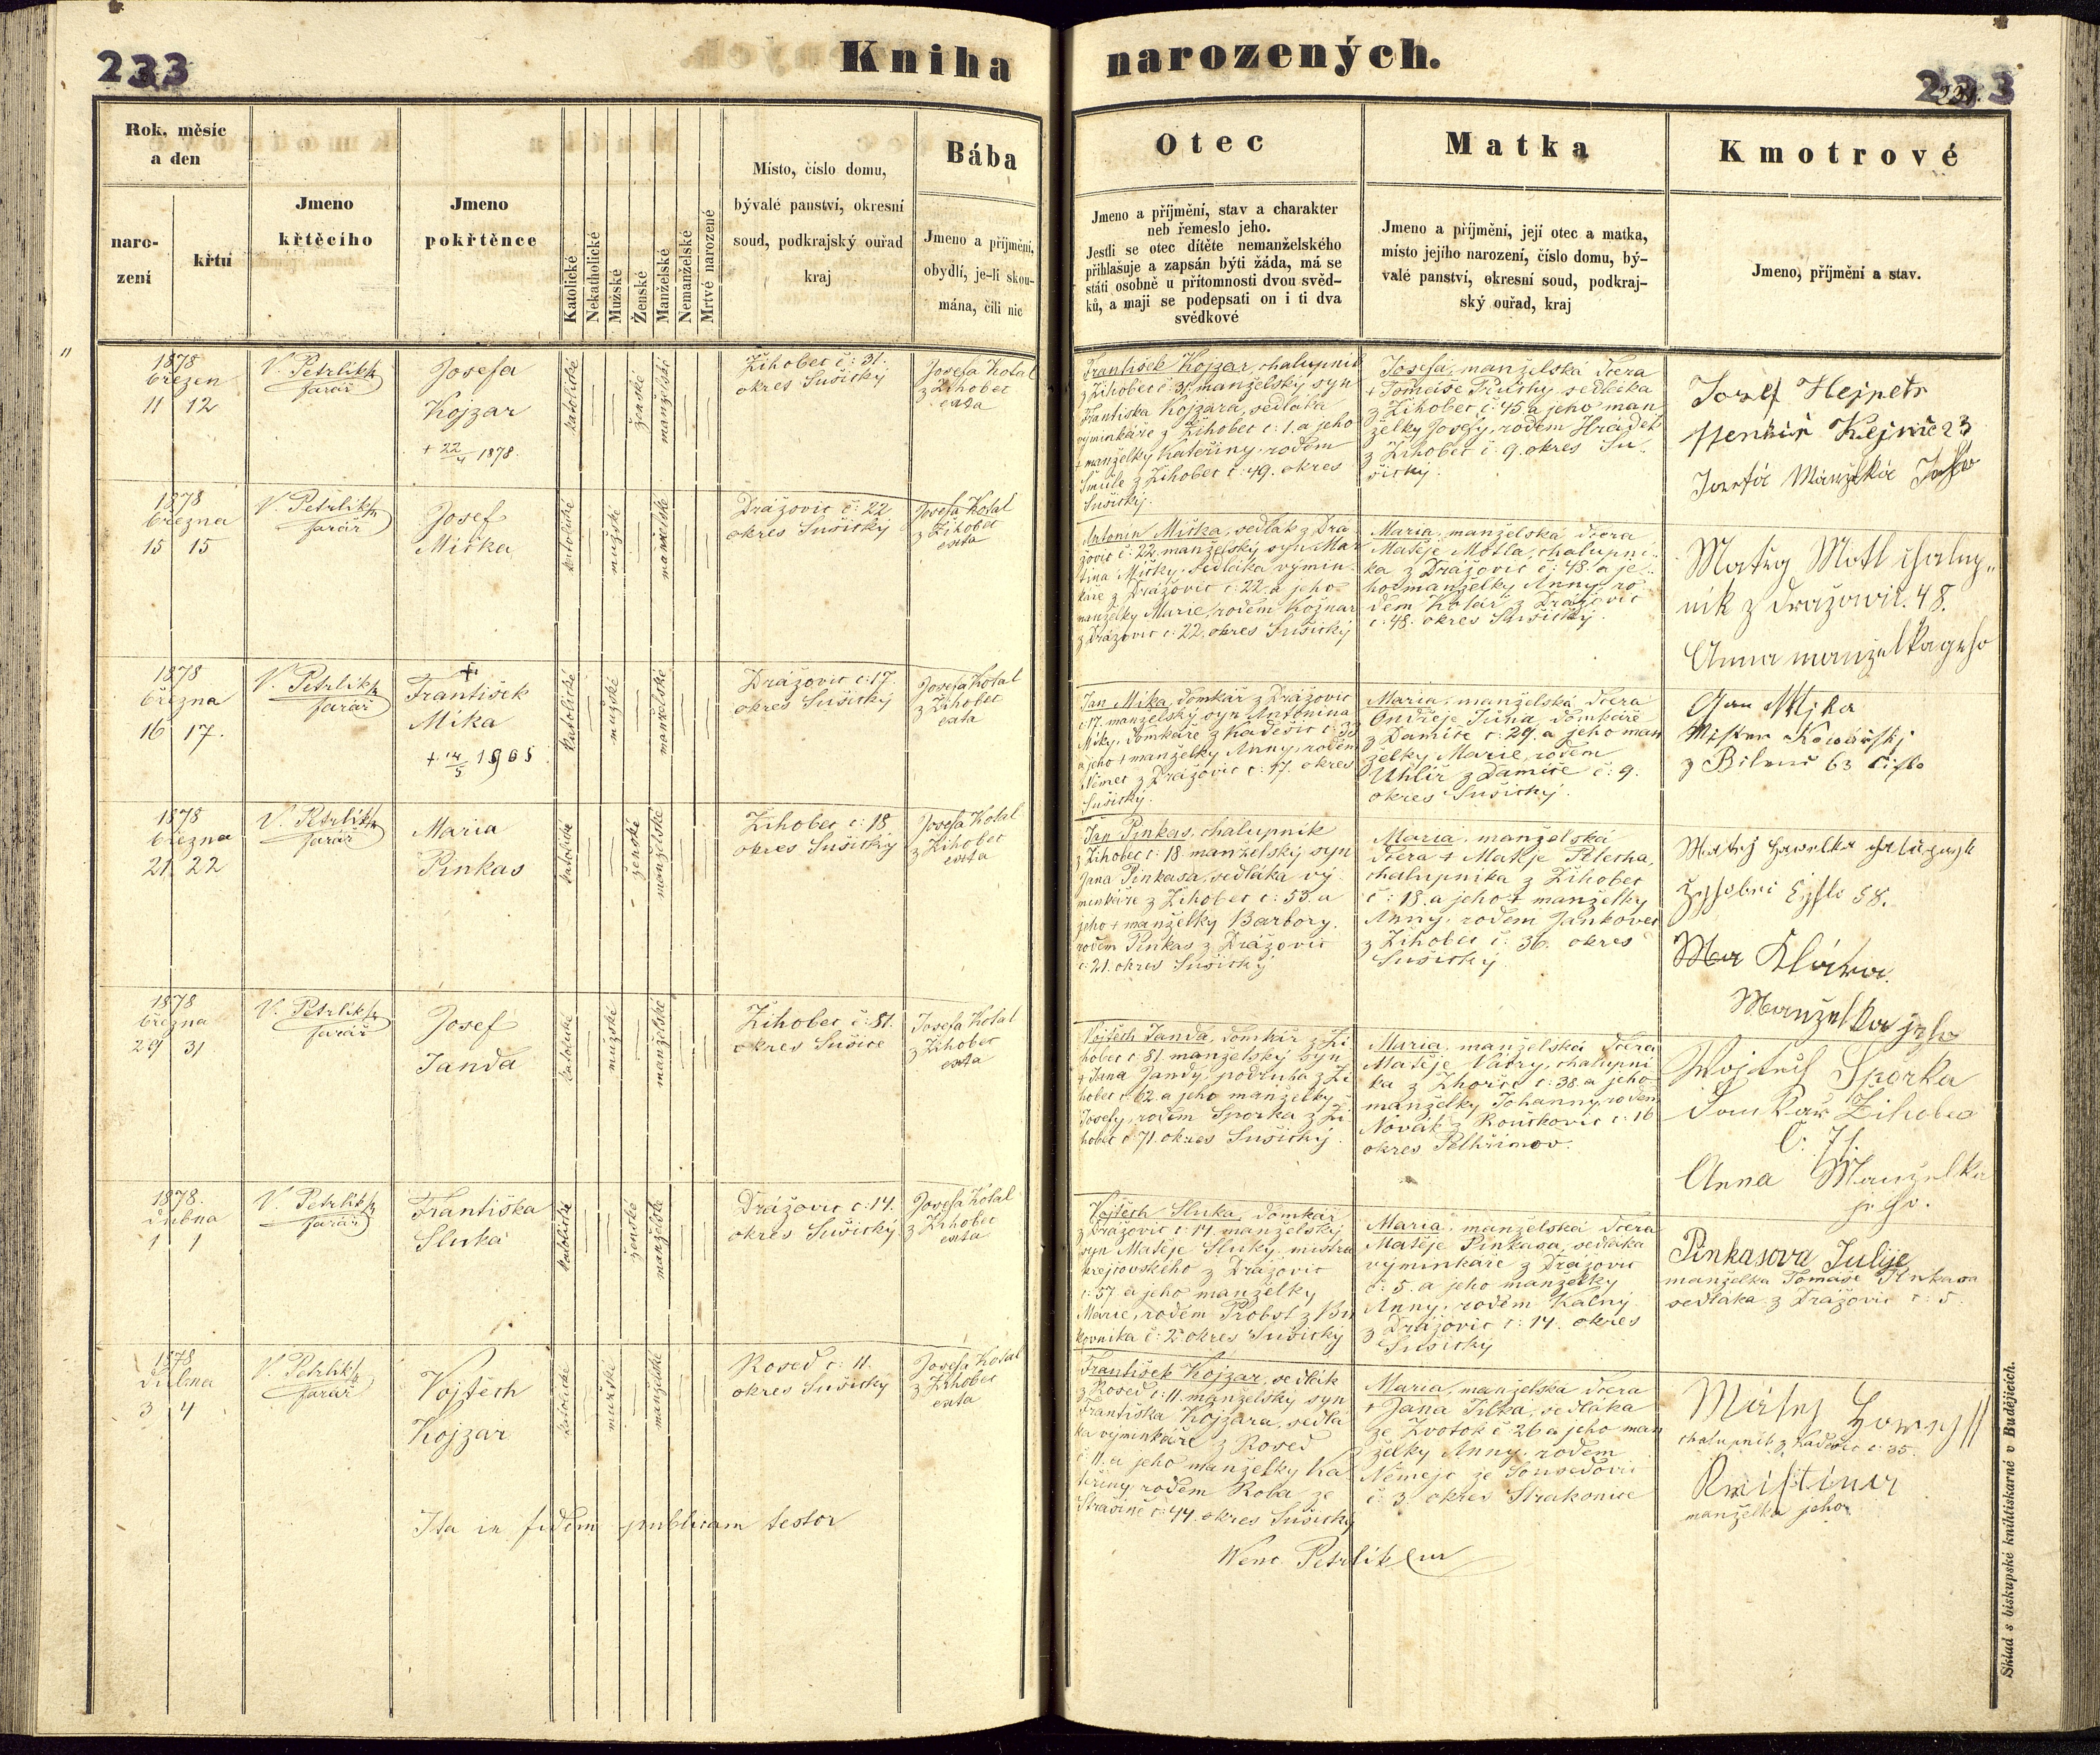 233
Kniha narozených.
233
Rok, měsíc
a den
naro-
zení
křtu
Jmeno
křtěcího
Jmeno
pokřtěnce
Katolické
Nekatholické
Mužské
Ženské
Manželské
Nemanželské
Mrtvě narozené
Místo, číslo domu,
bývalé panství, okresní
soud, podkrajský ouřad
kraj
Bába
Jmeno a příjmění,
obydlí, je-li skou-
mána, čili nic
Otec
Jmeno a příjmění, stav a charakter
neb řemeslo jeho.
Jestli se otec dítěte nemanželského
přihlašuje a zapsán býti žádá, má se
státi osobně u přítomnosti dvou svěd-
ků, a mají se podepsati on i ti dva
svědkové
Matka
Jmeno a příjmění, její otec a matka,
místo jejího narození, číslo domu, bý-
valé panství, okresní soud, podkraj-
ský ouřad, kraj
Kmotrové
Jmeno, příjmění a stav.
1878
březen
11 12
V. Petrlík
farář
Josefa
Kojzar
+ 22/4 1878.
katolické
ženské
manželské
Žihobec č: 31.
okres Sušický
Josefa Kotal
z Žihobec
exta
František Kojzar, chalupník
z Žihobec č: 31. manželský syn
Františka Kojzara, sedláka
výminkáře z Žihobec č: 1. a jeho
+ manželky Kateřiny, rodem
Šmule z Žihobec č: 49. okres
Sušický.
Josefa, manželská dcera
+ Tomáše Trůšky, sedláka
z Žihobec č: 45. a jeho man
želky Josefy, rodem Hrádek
z Žihobec č: 9. okres Su-
šický.
Josef Hejpetr
Josefa Manželka Jeho
1878
března
15 15
V. Petrlík
farář
Josef
Miška
katolické
mužské
manželské
Drážovic č: 22
okres Sušický
Josefa Kotal
z Žihobec
exta
Antonín Miška, sedlák z Drá
žovic č: 22. manželský syn Mar
tina Mišky, sedláka výmin-
káře z Drážovic č: 22. a jeho
manželky Marie, rodem Kožnar
z Drážovic č: 22. okres Sušický
Maria, manželská dcera
Matěje Motla, chalupní-
ka z Drážovic č: 48. a je-
ho manželky Anny, ro-
dem Kolář z Drážovic
č: 48. okres Sušický.
Matěg Motl chalup"
nik z Dražowic. 48.
Anna manzelka geho
1878
března
16 17.
V. Petrlík
farář
+
František
Míka
+ 14/5 1905
katolické
mužské
manželské
Drážovic č: 17.
okres Sušický
Josefa Kotal
z Žihobec
exta
Jan Míka, domkář z Drážovic
č: 17. manželský syn Antonína
Míky, domkáře z Kadešic č: 33
a jeho + manželky Anny, rodem
Němec z Drážovic č: 17. okres
Sušický.
Maria, manželská dcera
Ondřeje Jůna, domkáře
z Damíče č: 29. a jeho man
želky Marie, rodem
Uhlíř z Damíče č: 9.
okres Sušický.
Jan Mika
Mister Kowářský
1878
března
21 22
V. Petrlík
farář
Maria
Pinkas
katolické
ženské
manželské
Žihobec č: 18
okres Sušický
Josefa Kotal
z Žihobec
exta
Jan Pinkas, chalupník
Žihobec č: 18. manželský syn
Jana Pinkasa, sedláka vý
minkáře z Žihobec č: 53. a
jeho + manželky Barbory,
rodem Pinkas z Drážovic
č: 21. okres Sušický
Maria, manželská
dcera + Matěje Pelecha,
chalupníka z Žihobec
č: 18. a jeho + manželky
Anny, rodem Jankovec
z Žihobec č: 36. okres
Sušický
Klára
Manželka jeho
1878
března
29 31
V. Petrlík
farář
Josef
Janda
katolické
mužské
manželské
Žihobec č: 81.
okres Sušice
Josefa Kotal
z Žihobec
exta
Vojtěch Janda, domkář z Ži
hobec č: 81. manželský syn
+ Jana Jandy, podruha z Ži
hobec č: 62. a jeho manželky
Josefy, rodem Sporka z Ži
hobec č: 71. okres Sušický.
Maria, manželská dcera
Matěje Vávry, chalupní
ka z Zhoře č: 38. a jeho
manželky Johanny, rodem
Novák z Rouškovic č: 16
okres Pelhřimov.
Wojtěch Sporka
Domkař Žihobec
č. 71.
Anna Manzelka
jeho.
1878.
dubna
1 1
V. Petrlík
farář
Františka
Sluka
katolické
ženské
manželské
Drážovic č: 14.
okres Sušický
Josefa Kotal
z Žihobec
exta
Vojtěch Sluka, domkář
z Drážovic č: 14. manželský
syn Matěje Sluky, mistra
krejčovského z Drážovic
č: 57. a jeho manželky
Marie, rodem Probst z Bu
kovníka č: 2. okres Sušický
Maria, manželská dcera
Matěje Pinkasa, sedláka
výminkáře z Drážovic
č: 5. a jeho manželky
Anny, rodem Kalný
z Drážovic č: 14. okres
Sušický
Pinkasova Julije
manželka Tomáše Pinkasa
sedláka z Drážovic č: 5
1878
dubna
3 4
V. Petrlík
farář
Vojtěch
Kojzar
katolické
mužské
manželské
Rosed č: 11.
okres Sušický
Josefa Kotal
z Žihobec
exta
František Kojzar, sedlák
z Rosed č: 11. manželský syn
Františka Kojzara, sedlá
ka výminkáře z Rosed
č: 11. a jeho manželky Ka
teřiny, rodem Roba ze
Strašíně č: 44. okres Sušický
Maria, manželská dcera
+ Jana Jílka, sedláka
ze Zvotok č: 26. a jeho man
želky Anny, rodem
Němejc ze Sousedovic
č: 3. okres Strakonice
chalupník z Kadešic č: 35.
Kristina
manželka jeho
Ita in fidem publicam testor
Wenc. Petrlík
Sklad s biskupské knihtiskárně v Budějicích.